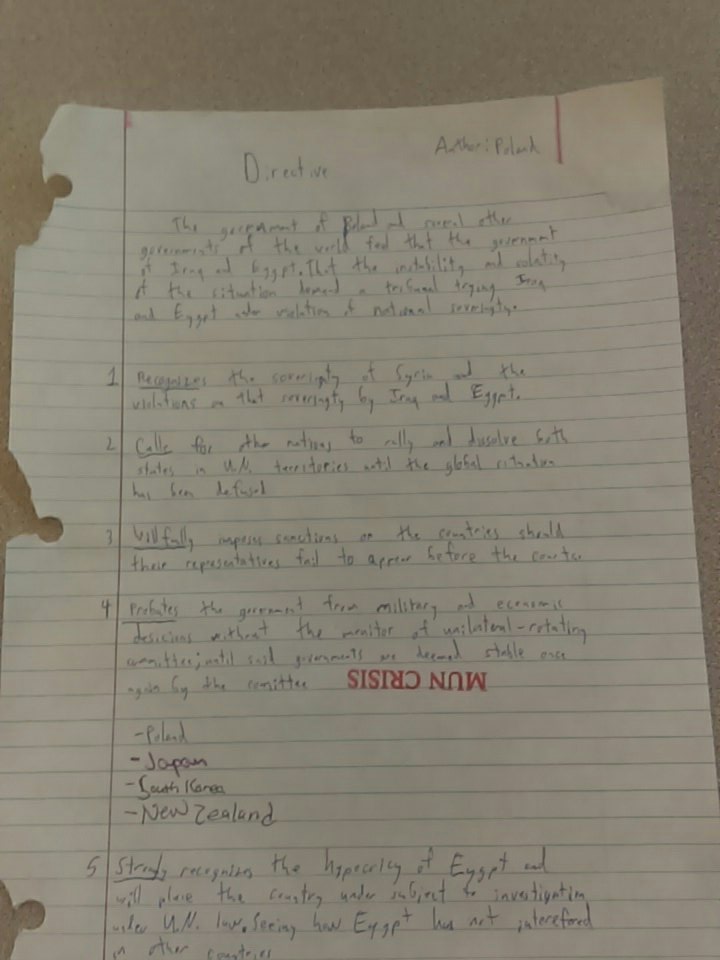 Author: Poland
Directive
The government of Poland and several other
governments of the world feel that the government
of Iraq and Egypt. That the instability and volatity
of the situation demand a tribunal trying Iraq
and Eygpt under violation of national soveringty.
1 Recognizes the soveringty of Syria and the
violations on that soveringty by Iraq and Egypt.
2 Calls for other nations to rally and dissolve both
states in U.N. territories until the global situation
has been defused
3 Willfully imposes sanctions on the countries should
these representatives fail to appear before the courts.
4 Probates the government from military and economic
desicions without the monitor of unilateral-rotating
committee; until said governments are deemed stable once
again by the comittee
MUN CRISIS
-Poland
-Japan
-South Korea
-New Zealand
5 Strongly recognizes the hypocricy of Eygpt and
will place the country under subject to investigation
under U.N. law. Seeing how Eygpt has not interefered
in other countries